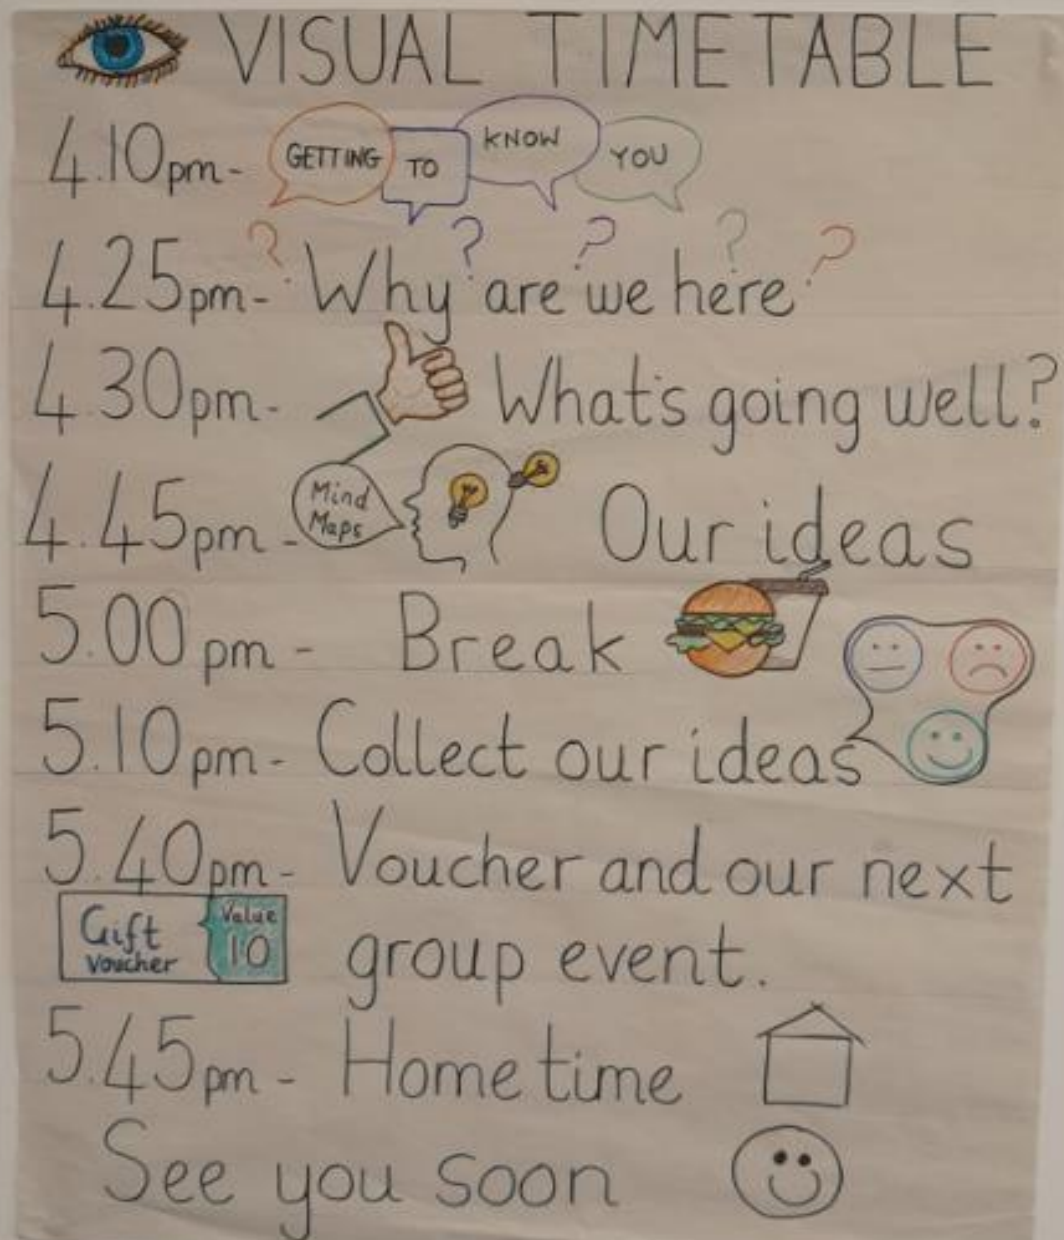 VISUAL TIMETABLE
4.10pm- GETTING TO KNOW YOU
4.25pm- Why are we here?
4.30pm- What's going well?
4.45pm- Mind Maps Our ideas
5.00pm- Break
5.10pm- Collect our ideas
5.40pm- Voucher and our next
Gift Voucher Value 10 group event.
5.45pm- Home time
See you soon